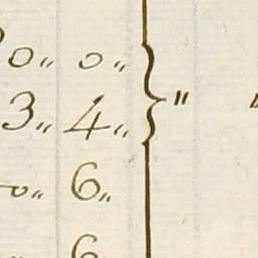 0„ 0„ } „
3„ 4„
0„ 6„
6